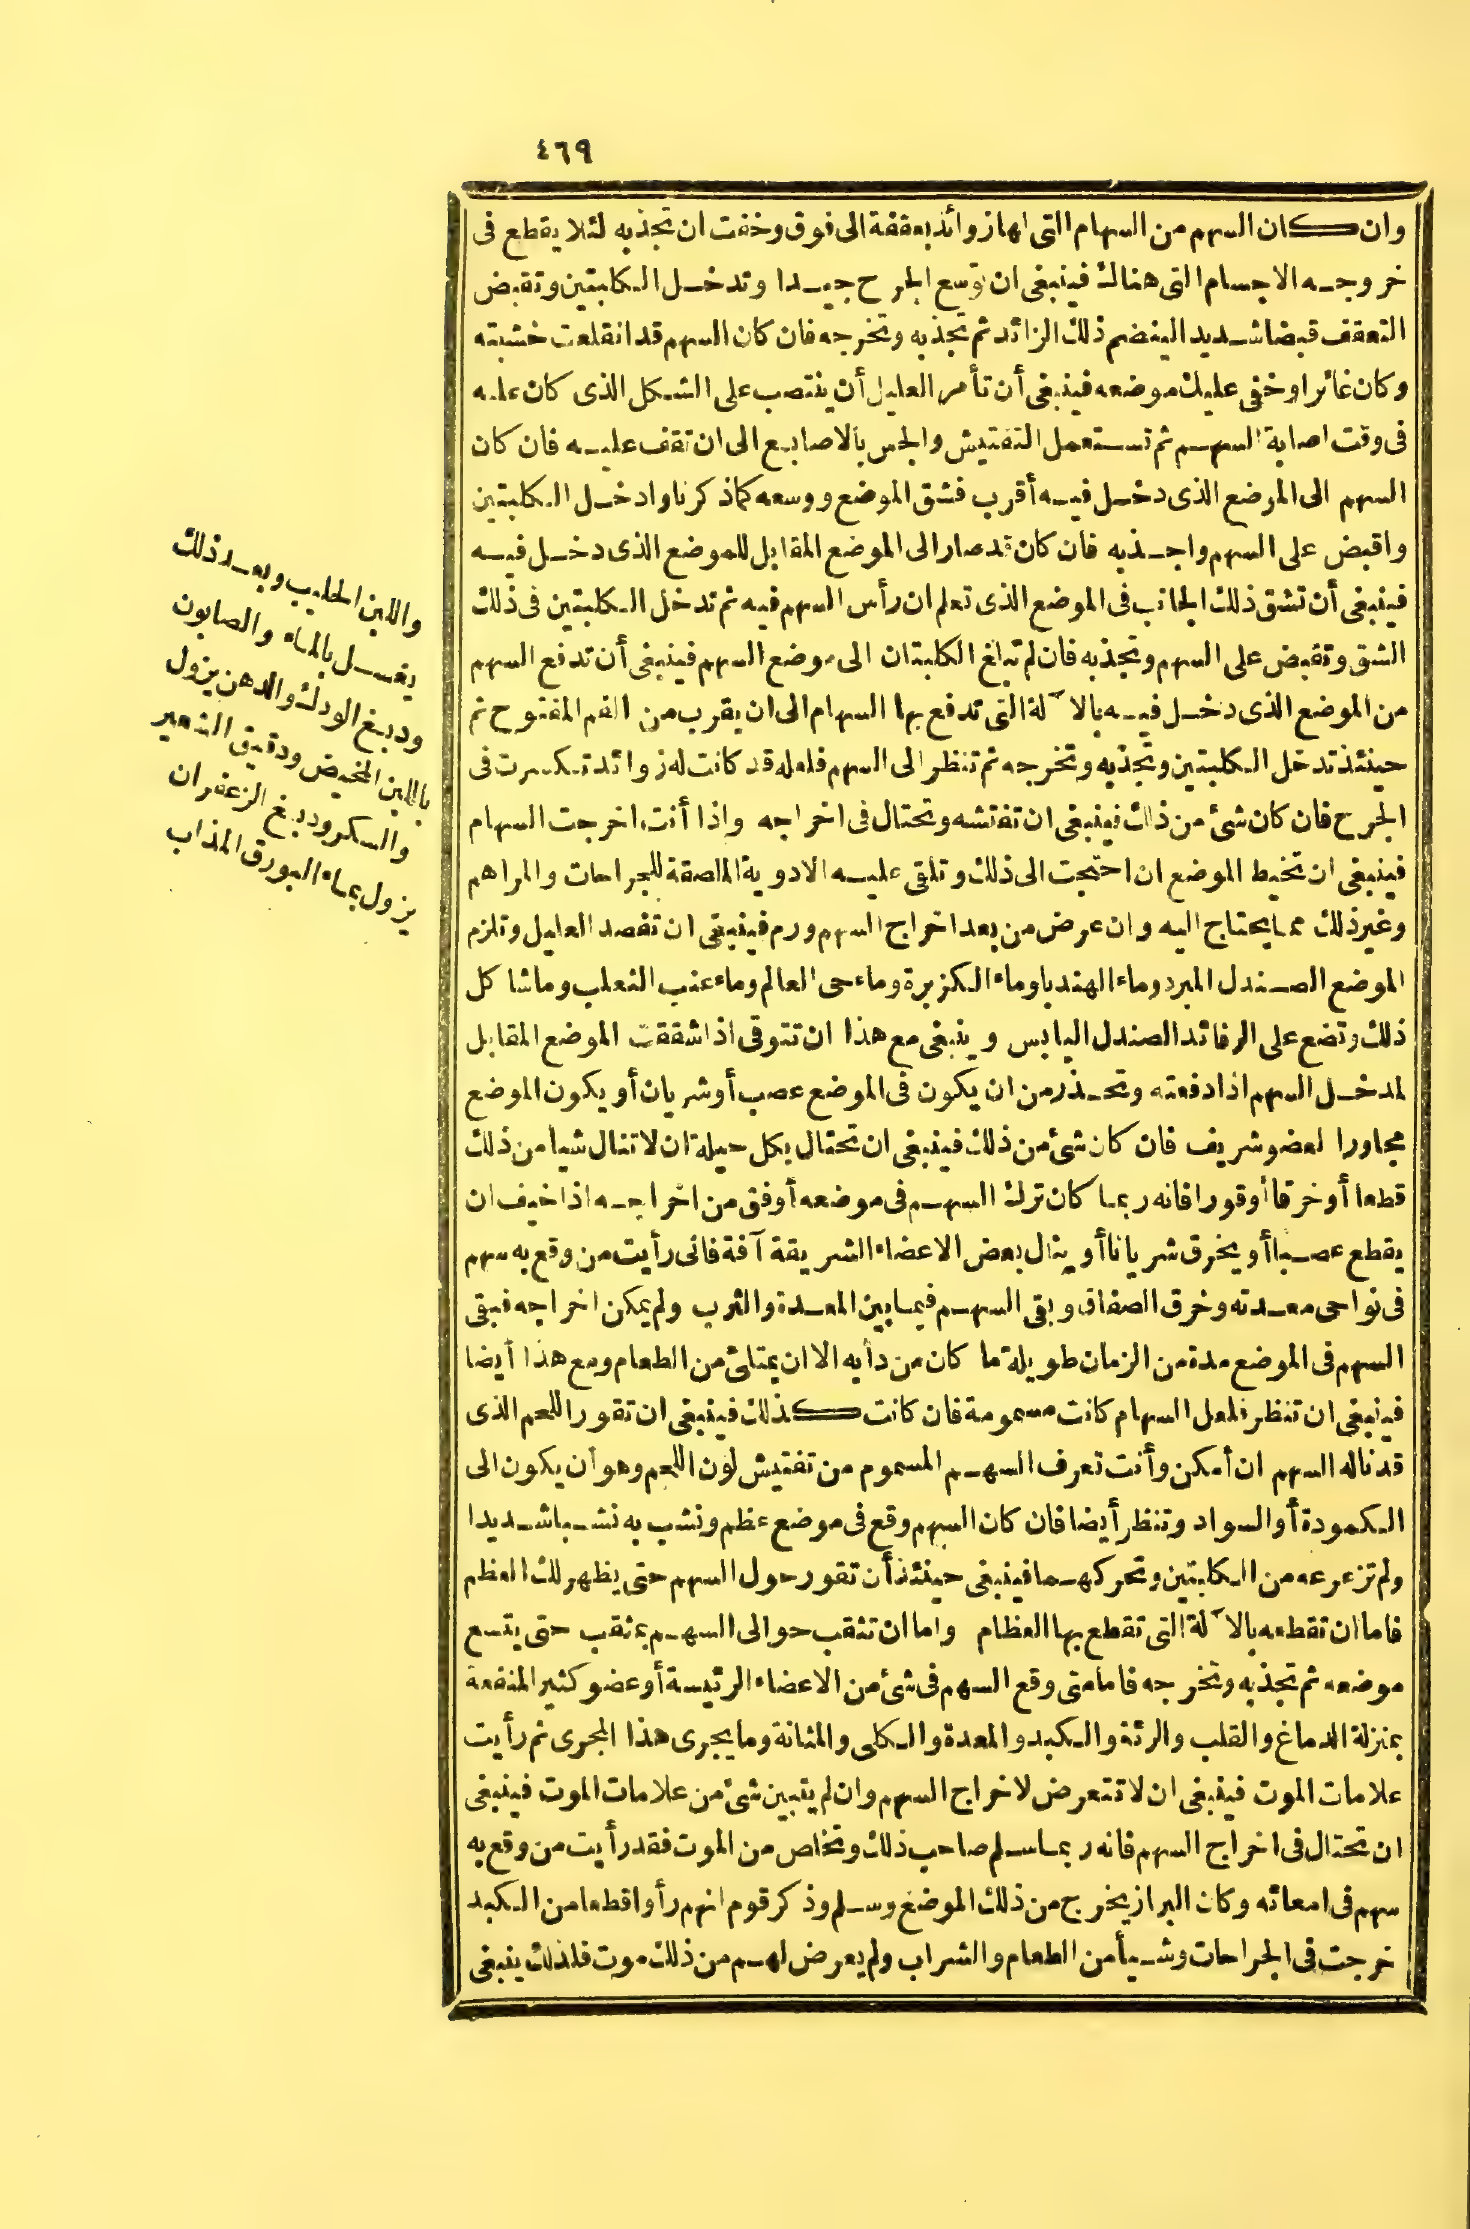 ٤٦٩
وان كان السهم من السهام التى لها زوائد بعقفة الى فوق وخفت ان تجذبه لئلا يقطع فى
خروجه الاجسام التى هناك فينبغى ان توسع الجرح جيدا وتدخل الكلبتين وتقبض
التعقف قبضا شديد الينضم ذلك الزائد ثم تجذبه وتخرجه فان كان السهم قد انقلعت خشبته
وكان غائرا وخفى عليك موضعه فينبغى أن تأمر العليل أن ينتصب على الشكل الذى كان عليه
فى وقت اصابة السهم ثم تستعمل التفتيش والجس بالاصابع الى ان تقف عليه فان كان
السهم الى الموضع الذى دخل فيه أقرب فشق الموضع ووسعه كما ذكرنا وادخل الكلبتين
واقبض على السهم واجذبه فان كان قد صار الى الموضع المقابل للموضع الذى دخل فيه
فينبغى أن تشق ذلك الجانب فى الموضع الذى تعلم ان رأس السهم فيه ثم تدخل الكلبتين فى ذلك
الشق وتقبض على السهم وتجذبه فان لم تبلغ الكلبتان الى موضع السهم فينبغى أن تدفع السهم
من الموضع الذى دخل فيه بالآلة التى تدفع بها السهام الى ان يقرب من الفم المفتوح ثم
حينئذ تدخل الكلبتين وتجذبه وتخرجه ثم تنظر الى السهم فلعله قد كانت له زوائد تكسرت فى
الجرح فان كان شئ من ذلك فينبغى ان تفتشه وتحتال فى اخراجه واذا أنت اخرجت السهام
فينبغى ان تخيط الموضع ان احتجت الى ذلك وتلقى عليه الادوية الملاصقة للجراحات والمراهم
وغير ذلك مما يحتاج اليه وان عرض من بعد اخراج السهم ورم فينبغى ان تفصد العليل وتلزم
الموضع الصندل المبرد وماء الهندبا وماء الكزبرة وماء حى العالم وماء عنب الثعلب وما شاكل
ذلك وتضع على الرفائد الصندل اليابس وينبغى مع هذا ان تتوقى اذا شققت الموضع المقابل
لمدخل السهم اذا دفعته وتحذر من ان يكون فى الموضع عصب أو شريان أو يكون الموضع
مجاورا لعضو شريف فان كان شئ من ذلك فينبغى ان تحتال بكل حيلة ان لا تنال شيأ من ذلك
قطعا أو خرقا أو قورا فانه ربما كان ترك السهم فى موضعه أوفق من اخراجه اذا خيف ان
يقطع عصبا أو يخرق شريانا أو ينال بعض الاعضاء الشريفة آفة فانى رأيت من وقع به سهم
فى نواحى معدته وخرق الصفاق وبقى السهم فيما بين المعدة والثرب ولم يمكن اخراجه فبقى
السهم فى الموضع مدة من الزمان طويلة ما كان من دأبه الا ان يمتلئ من الطعام ومع هذا أيضا
فينبغى ان تنظر فلعل السهام كانت مسمومة فان كانت كذلك فينبغى ان تقور اللحم الذى
قد ناله السهم ان أمكن وأنت تعرف السهم المسموم من تفتيش لون اللحم وهو أن يكون الى
الكمودة أو السواد وتنظر أيضا فان كان السهم وقع فى موضع عظم ونشب به نشبا شديدا
ولم تزعزعه من الكلبتين وتحركهما فينبغى حينئذ أن تقور حول السهم حتى يظهر لك العظم
فاما ان تقطعه بالآلة التى تقطع بها العظام واما ان تثقب حوالى السهم بمثقب حتى يتسع
موضعه ثم تجذبه وتخرجه فاما متى وقع السهم فى شئ من الاعضاء الرئيسة أو عضو كثير المنفعة
بمنزلة الدماغ والقلب والرئة والكبد والمعدة والكلى والمثانة وما يجرى هذا المجرى ثم رأيت
علامات الموت فينبغى ان لا تتعرض لاخراج السهم وان لم يتبين شئ من علامات الموت فينبغى
ان تحتال فى اخراج السهم فانه ربما سلم صاحب ذلك وتخلص من الموت فقد رأيت من وقع به
سهم فى امعائه وكان البراز يخرج من ذلك الموضع وسلم وذكر قوم انهم رأوا قطعا من الكبد
خرجت فى الجراحات وشيأ من الطعام والشراب ولم يعرض لهم من ذلك موت فلذلك ينبغى
واللبن الحليب وبعد ذلك
يغسل بالماء والصابون
ودبغ الودك والدهن يزول
باللبن المخيض ودقيق الشعير
والسكر ودبغ الزعفران
يزول بماء البورق المذاب